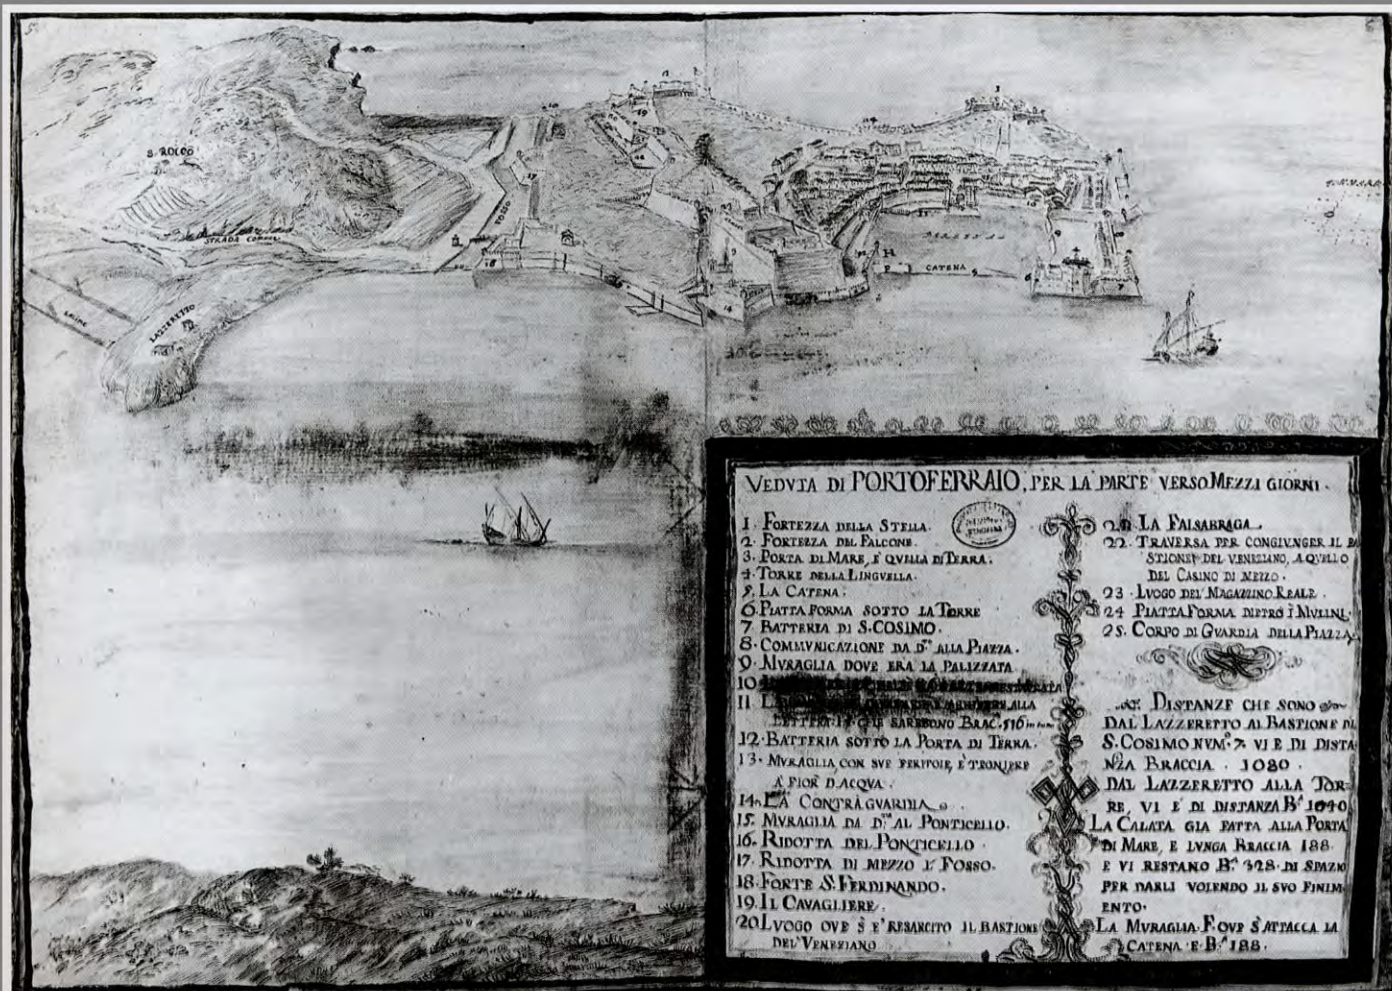 S. ROCCO
STRADA COMUNE
LAZZERETTO
SALINE
FOSSO
DARSENA
CATENA
VEDVTA DI PORTOFERRAIO, PER LA PARTE VERSO MEZZI GIORNI.
1. FORTEZZA DELLA STELLA.
2. FORTEZZA DEL FALCONE.
3. PORTA DI MARE, E' QVELLA DI TERRA.
4. TORRE DELLA LINGVELLA.
5. LA CATENA.
6. PIATTA FORMA SOTTO LA TORRE
7. BATTERIA DI S. COSIMO.
8. COMMVNICAZIONE DA D.TA ALLA PIAZZA.
9. MVRAGLIA DOVE ERA LA PALIZZATA
10
11 ALLA
LETTERA CHE SAREBONO BRAC. 516
12. BATTERIA SOTTO LA PORTA DI TERRA.
13. MVRAGLIA, CON SVE FERITOIE, E' TRONIERE
A FIOR D'ACQVA.
14. LA CONTRAGVARDIA.
15. MVRAGLIA DA D.TA AL PONTICELLO.
16. RIDOTTA DEL PONTICELLO.
17. RIDOTTA DI MEZZO I' FOSSO.
18. FORTE S. FERDINANDO.
19. IL CAVAGLIERE.
20. LVOGO OVE S'E' RESARCITO IL BASTIONE
DEL VENEZIANO
21. LA FALSABRAGA
22. TRAVERSA PER CONGIVNGER IL BA
STIONE DEL VENEZIANO, A QVELLO
DEL CASINO DI MEZZO.
23. LVOGO DEL MAGAZZINO REALE.
24 PIATTA FORMA DIETRO I MVLINI.
25. CORPO DI GVARDIA DELLA PIAZZA
DISTANZE CHE SONO
DAL LAZZERETTO AL BASTIONE DI
S. COSIMO NVM.º 7. VI E DI DISTA
NZA BRACCIA. 1080.
DAL LAZZERETTO ALLA TOR-
RE, VI E' DI DISTANZA B.A 1040
LA CALATA GIA FATTA ALLA PORTA
DI MARE, E LVNGA BRACCIA 188.
E VI RESTANO B.A 328. DI SPAZIO
PER DARLI VOLENDO IL SVO FINIM-
ENTO.
LA MVRAGLIA. F. OVE S'ATTACCA LA
CATENA E B.A 188.